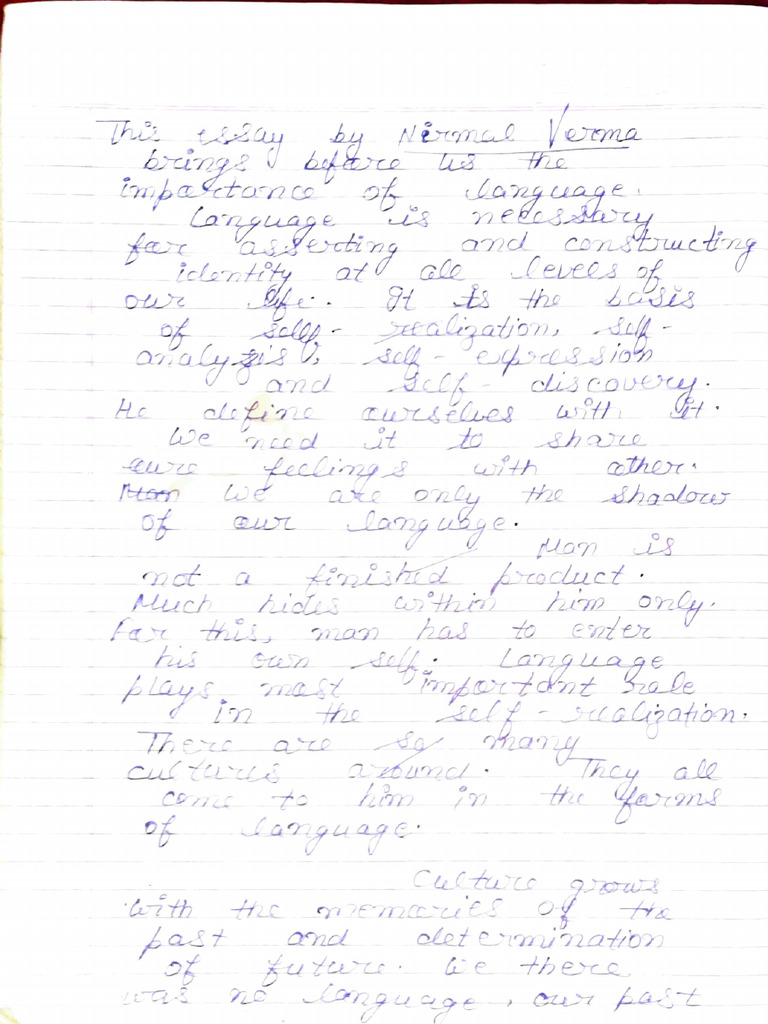 This essay by Nirmal Verma
brings before us the
importance of language.
Language is necessary
for asserting and constructing
identity at all levels of
our life. It is the basis
of self-realization, self-
analysis, self-expression
and self-discovery.
He define ourselves with it.
We need it to share
our feelings with other.
We are only the shadow
of our language.
Man is
not a finished product.
Much hides within him only.
For this, man has to enter
his own self. Language
plays most important role
in the self-realization.
There are so many
cultures around. They all
come to him in the forms
of language.
Culture grows
with the memories of the
past and determination
of future. We there
was no language, our past